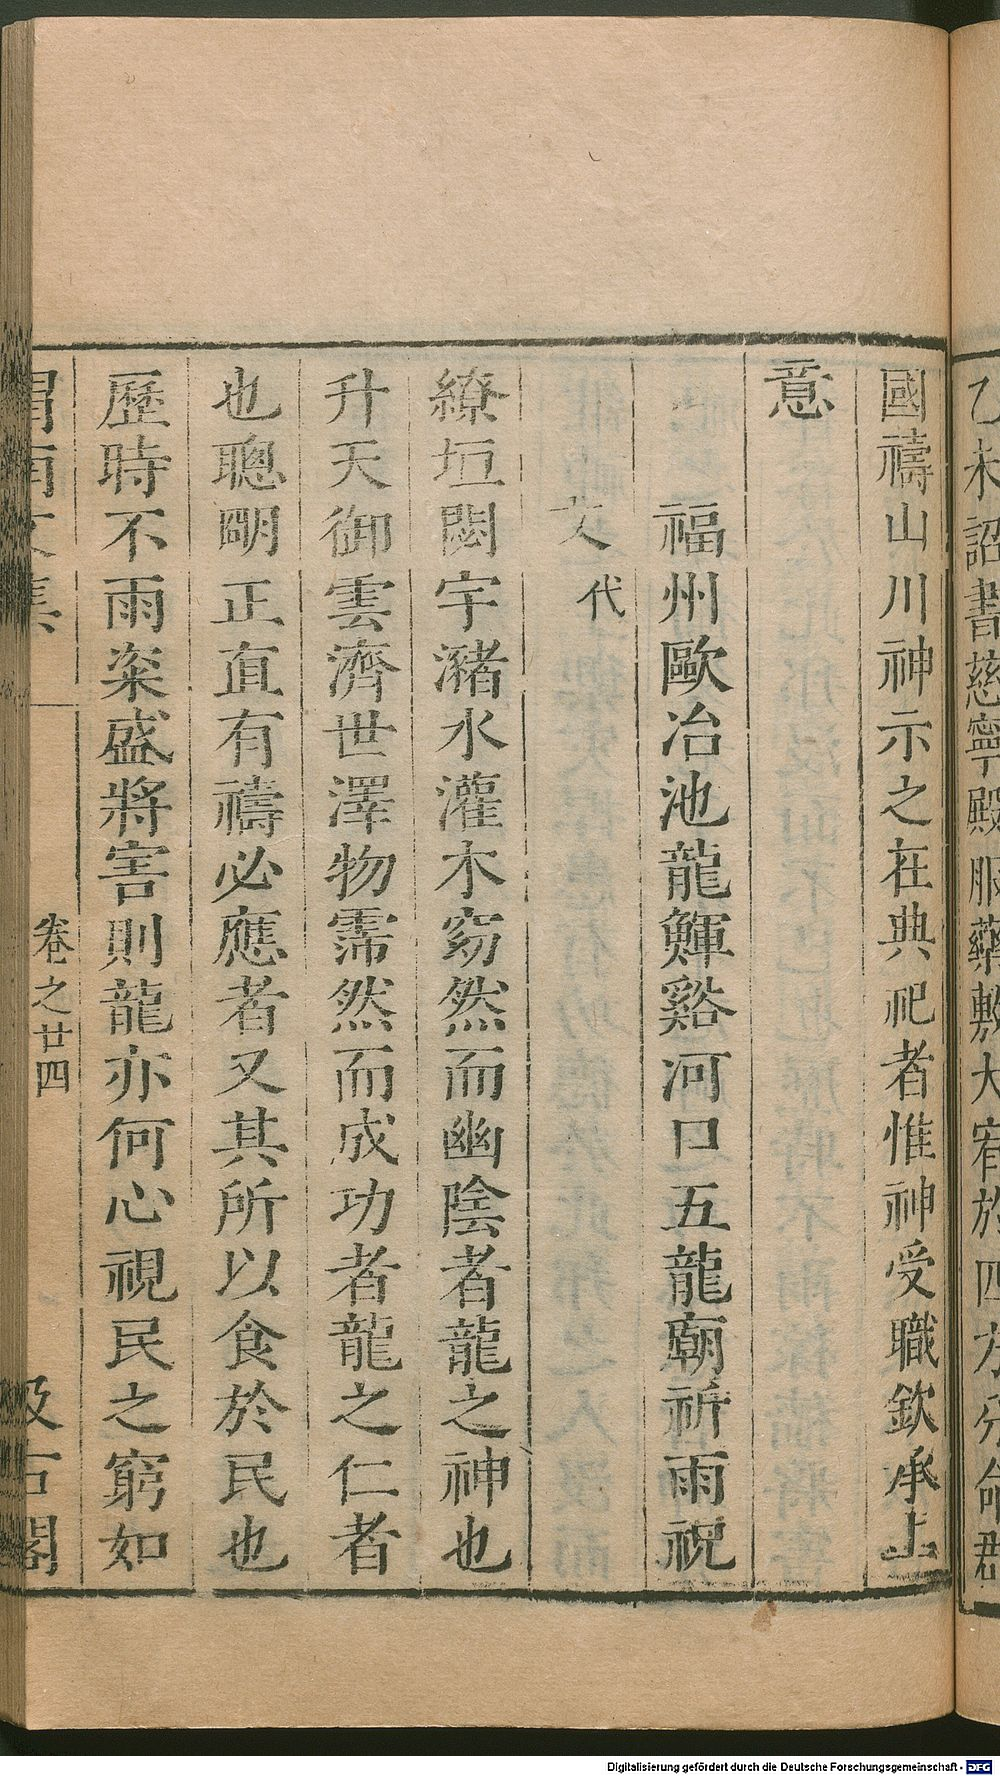 乙未詔書慈寧殿服藥敷大宥於四方分命群
國禱山川神示之在典祀者惟神受職欽承上
意
福州歐冶池龍鱓谿河口五龍廟祈雨祝
文代
繚垣閟宇瀦水灌木窈然而幽陰者龍之神也
升天御雲濟世澤物霈然而成功者龍之仁者
也聰明正直有禱必應者又其所以食於民也
歷時不雨粢盛將害則龍亦何心視民之窮如
渭南文集 卷之廿四 汲古閣
Digitalisierung gefördert durch die Deutsche Forschungsgemeinschaft - DFG